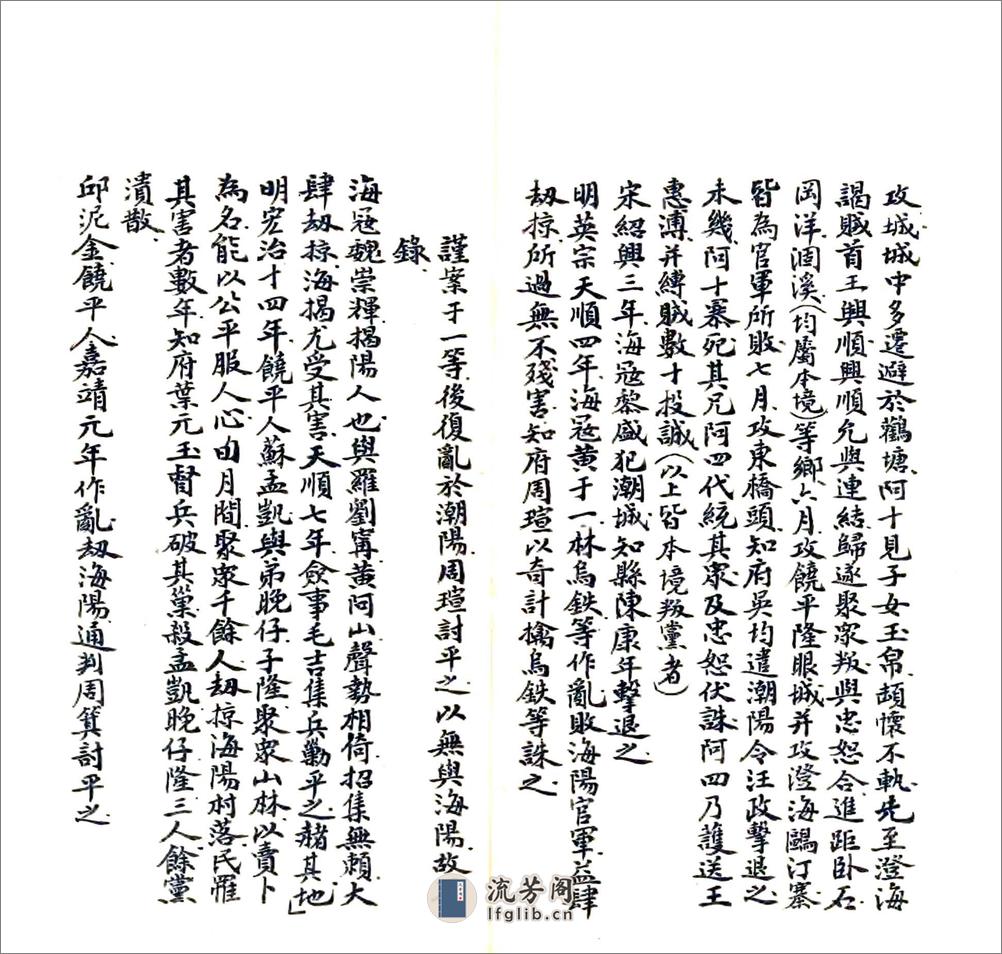 攻城城中多遷避於鸛塘阿十見子女玉帛頗懷不軌先至澄海
謁賊首王興順興順允與連結歸遂聚衆叛與忠恕合進距卧石
岡洋涸溪(均屬本境)等鄉六月攻饒平隆眼城并攻澄海鷗汀寨
皆為官軍所敗七月攻東橋頭知府吳均遣潮陽令汪政擊退之
未幾阿十寨死其兄阿四代統其衆及忠恕伏誅阿四乃護送王
惠溥并縛賊數十投誠(以上皆本境叛黨者)
宋紹興三年海寇黎盛犯潮城知縣陳康年擊退之
明英宗天順四年海寇黃于一林烏鉄等作亂敗海陽官軍益肆
刼掠所過無不殘害知府周瑄以奇計擒烏鉄等誅之
謹案于一等後復亂於潮陽周瑄討平之以無與海陽故
錄
海寇魏崇輝揭陽人也與羅劉寗黃阿山聲勢相倚招集無賴大
肆刼掠海揭尤受其害天順七年僉事毛吉集兵勦平之赭其地
明宏治十四年饒平人蘇孟凱與弟晚仔子隆聚衆山林以賣卜
為名能以公平服人心旬月間聚衆千餘人刼掠海陽村落民罹
其害者數年知府葉元玉督兵破其巢殺孟凱晚仔隆三人餘黨
潰散
邱泥金饒平人嘉靖元年作亂刼海陽通判周箕討平之
流芳阁
lfglib.cn